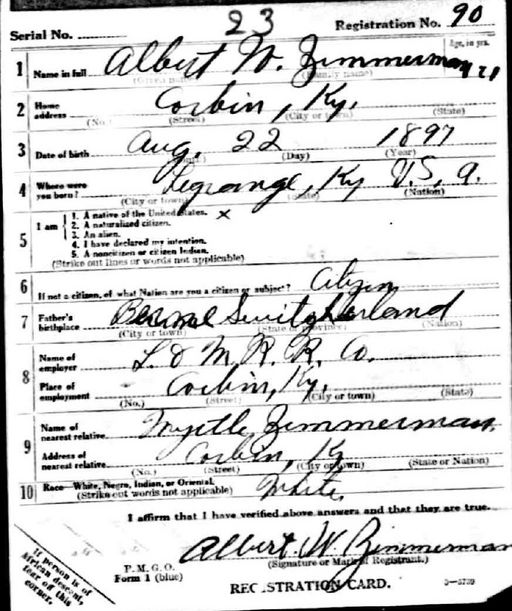 23
Serial No.
Registration No. 90
1 Name in full Albert W. Zimmerman 21
(Given name) (Family name) Age, in yrs.
2 Home address Corbin, Ky.
(No.) (Street) (City or town) (State)
3 Date of birth Aug. 22 1897
(Day) (Year)
4 Where were you born? Legrange, Ky U.S.A.
(City or town) (State) (Nation)
5 I am
1. A native of the United States. x
2. A naturalized citizen.
3. An alien.
4. I have declared my intention.
5. A noncitizen or citizen Indian.
(Strike out lines or words not applicable)
6 If not a citizen, of what Nation are you a citizen or subject?
7 Father's birthplace Switzherland
(City or town) (State or province) (Nation)
8 Name of employer L & N R. R. Co.
Place of employment Corbin, Ky.
(No.) (Street) (City or town) (State)
9 Name of nearest relative Myrtle Zimmerman
Address of nearest relative Corbin, Ky
(No.) (Street) (City or town) (State or Nation)
10 Race—White, Negro, Indian, or Oriental. White
(Strike out words not applicable)
I affirm that I have verified above answers and that they are true.
Albert W Zimmerman
(Signature or Mark of Registrant.)
P.M.G.O.
Form 1 (blue)
REGISTRATION CARD.
3—6739
If person is of
African descent,
tear off this
corner.